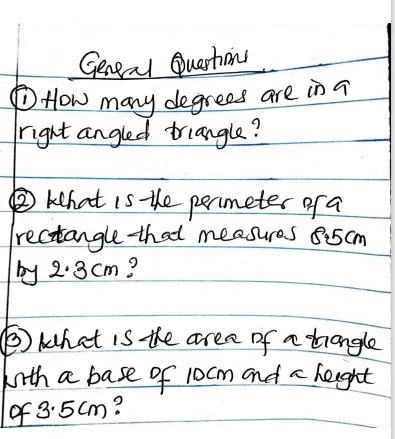 General Questions
① How many degrees are in a
right angled triangle?
② What is the perimeter of a
rectangle that measures 8.5cm
by 2.3cm?
③ What is the area of a triangle
with a base of 10cm and a height
of 3.5cm?